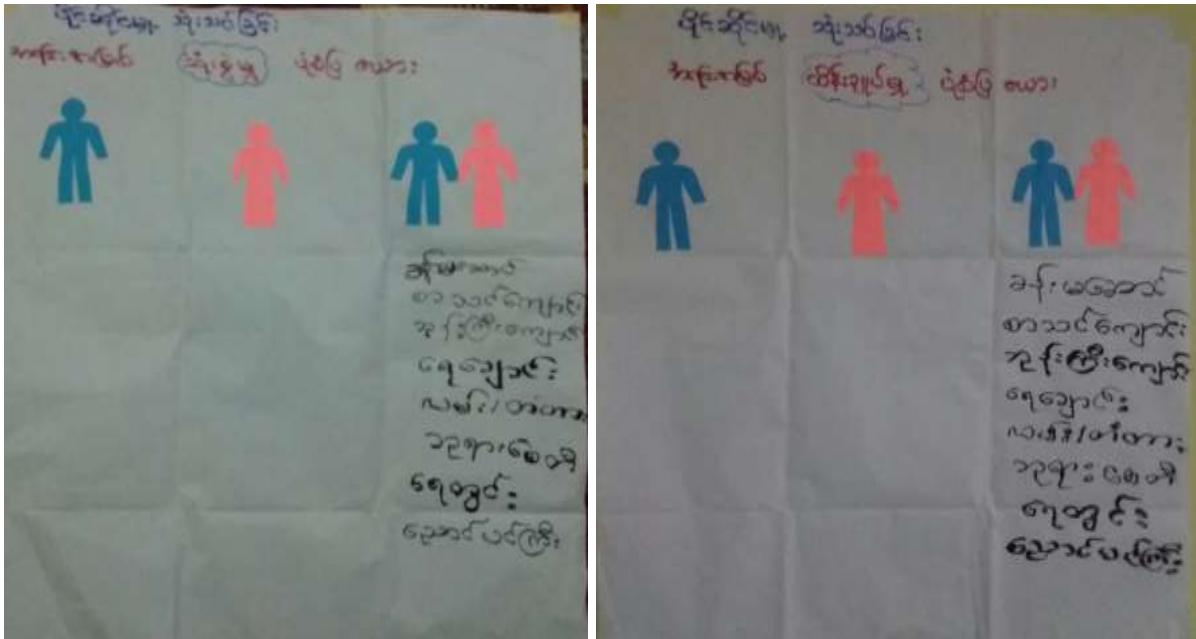 ပိုင်ဆိုင်မှု သုံးသပ်ခြင်း
သုံးစွဲမှု ပုံစံပြ ဇယား
ခန်းမဆောင်
စာသင်ကျောင်း
ဘုန်းကြီးကျောင်း
ရေချောင်း
လမ်း/တံတား
ဘုရားစေတီ
ရေတွင်း
ညောင်ပင်ကြီး
ပိုင်ဆိုင်မှု သုံးသပ်ခြင်း
ထိန်းချုပ်မှု ပုံစံပြ ဇယား
ခန်းမဆောင်
စာသင်ကျောင်း
ဘုန်းကြီးကျောင်း
ရေချောင်း
လမ်း/တံတား
ဘုရားစေတီ
ရေတွင်း
ညောင်ပင်ကြီး